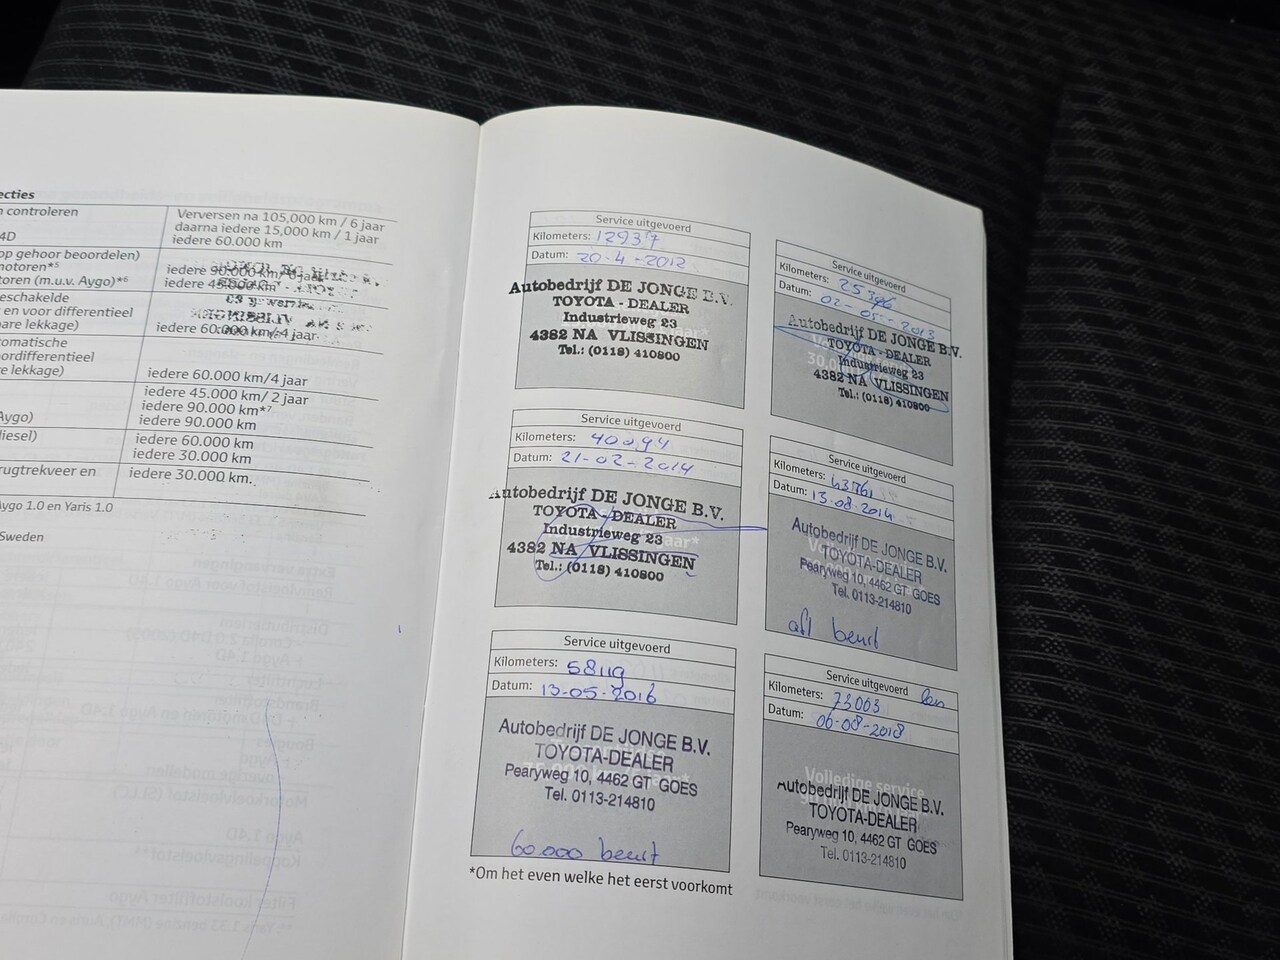 ecties
n controleren
Verversen na 105,000 km / 6 jaar
daarna iedere 15,000 km / 1 jaar
4D
iedere 60.000 km
op gehoor beoordelen)
motoren*⁵
iedere 90.000 km/ 6 jaar
toren (m.u.v. Aygo)*⁶
iedere 45.000 km
eschakelde
en voor differentieel
are lekkage)
iedere 60.000 km/4 jaar
tomatische
oordifferentieel
re lekkage)
iedere 60.000 km/4 jaar
iedere 45.000 km/ 2 jaar
iedere 90.000 km*⁷
Aygo)
iedere 90.000 km
diesel)
iedere 60.000 km
iedere 30.000 km
rugtrekveer en
iedere 30.000 km.
Aygo 1.0 en Yaris 1.0
Sweden
Service uitgevoerd
Kilometers: 12937
Datum: 20-4-2012
Autobedrijf DE JONGE B.V.
TOYOTA - DEALER
Industrieweg 23
4382 NA VLISSINGEN
Tel.: (0118) 410800
Service uitgevoerd
Kilometers: 25396
Datum: 02-05-2013
Autobedrijf DE JONGE B.V.
TOYOTA - DEALER
Industrieweg 23
4382 NA VLISSINGEN
Tel.: (0118) 410800
Service uitgevoerd
Kilometers: 40094
Datum: 21-02-2014
Autobedrijf DE JONGE B.V.
TOYOTA - DEALER
Industrieweg 23
4382 NA VLISSINGEN
Tel.: (0118) 410800
Service uitgevoerd
Kilometers:
Datum: 13-08-2014
Autobedrijf DE JONGE B.V.
TOYOTA-DEALER
Pearyweg 10, 4462 GT GOES
Tel. 0113-214810
beurt
Service uitgevoerd
Kilometers: 58119
Datum: 13-05-2016
Autobedrijf DE JONGE B.V.
TOYOTA-DEALER
Pearyweg 10, 4462 GT GOES
Tel. 0113-214810
60.000 beurt
Service uitgevoerd
Kilometers: 73003
Datum: 06-08-2018
Volledige service
Autobedrijf DE JONGE B.V.
TOYOTA-DEALER
Pearyweg 10, 4462 GT GOES
Tel. 0113-214810
*Om het even welke het eerst voorkomt